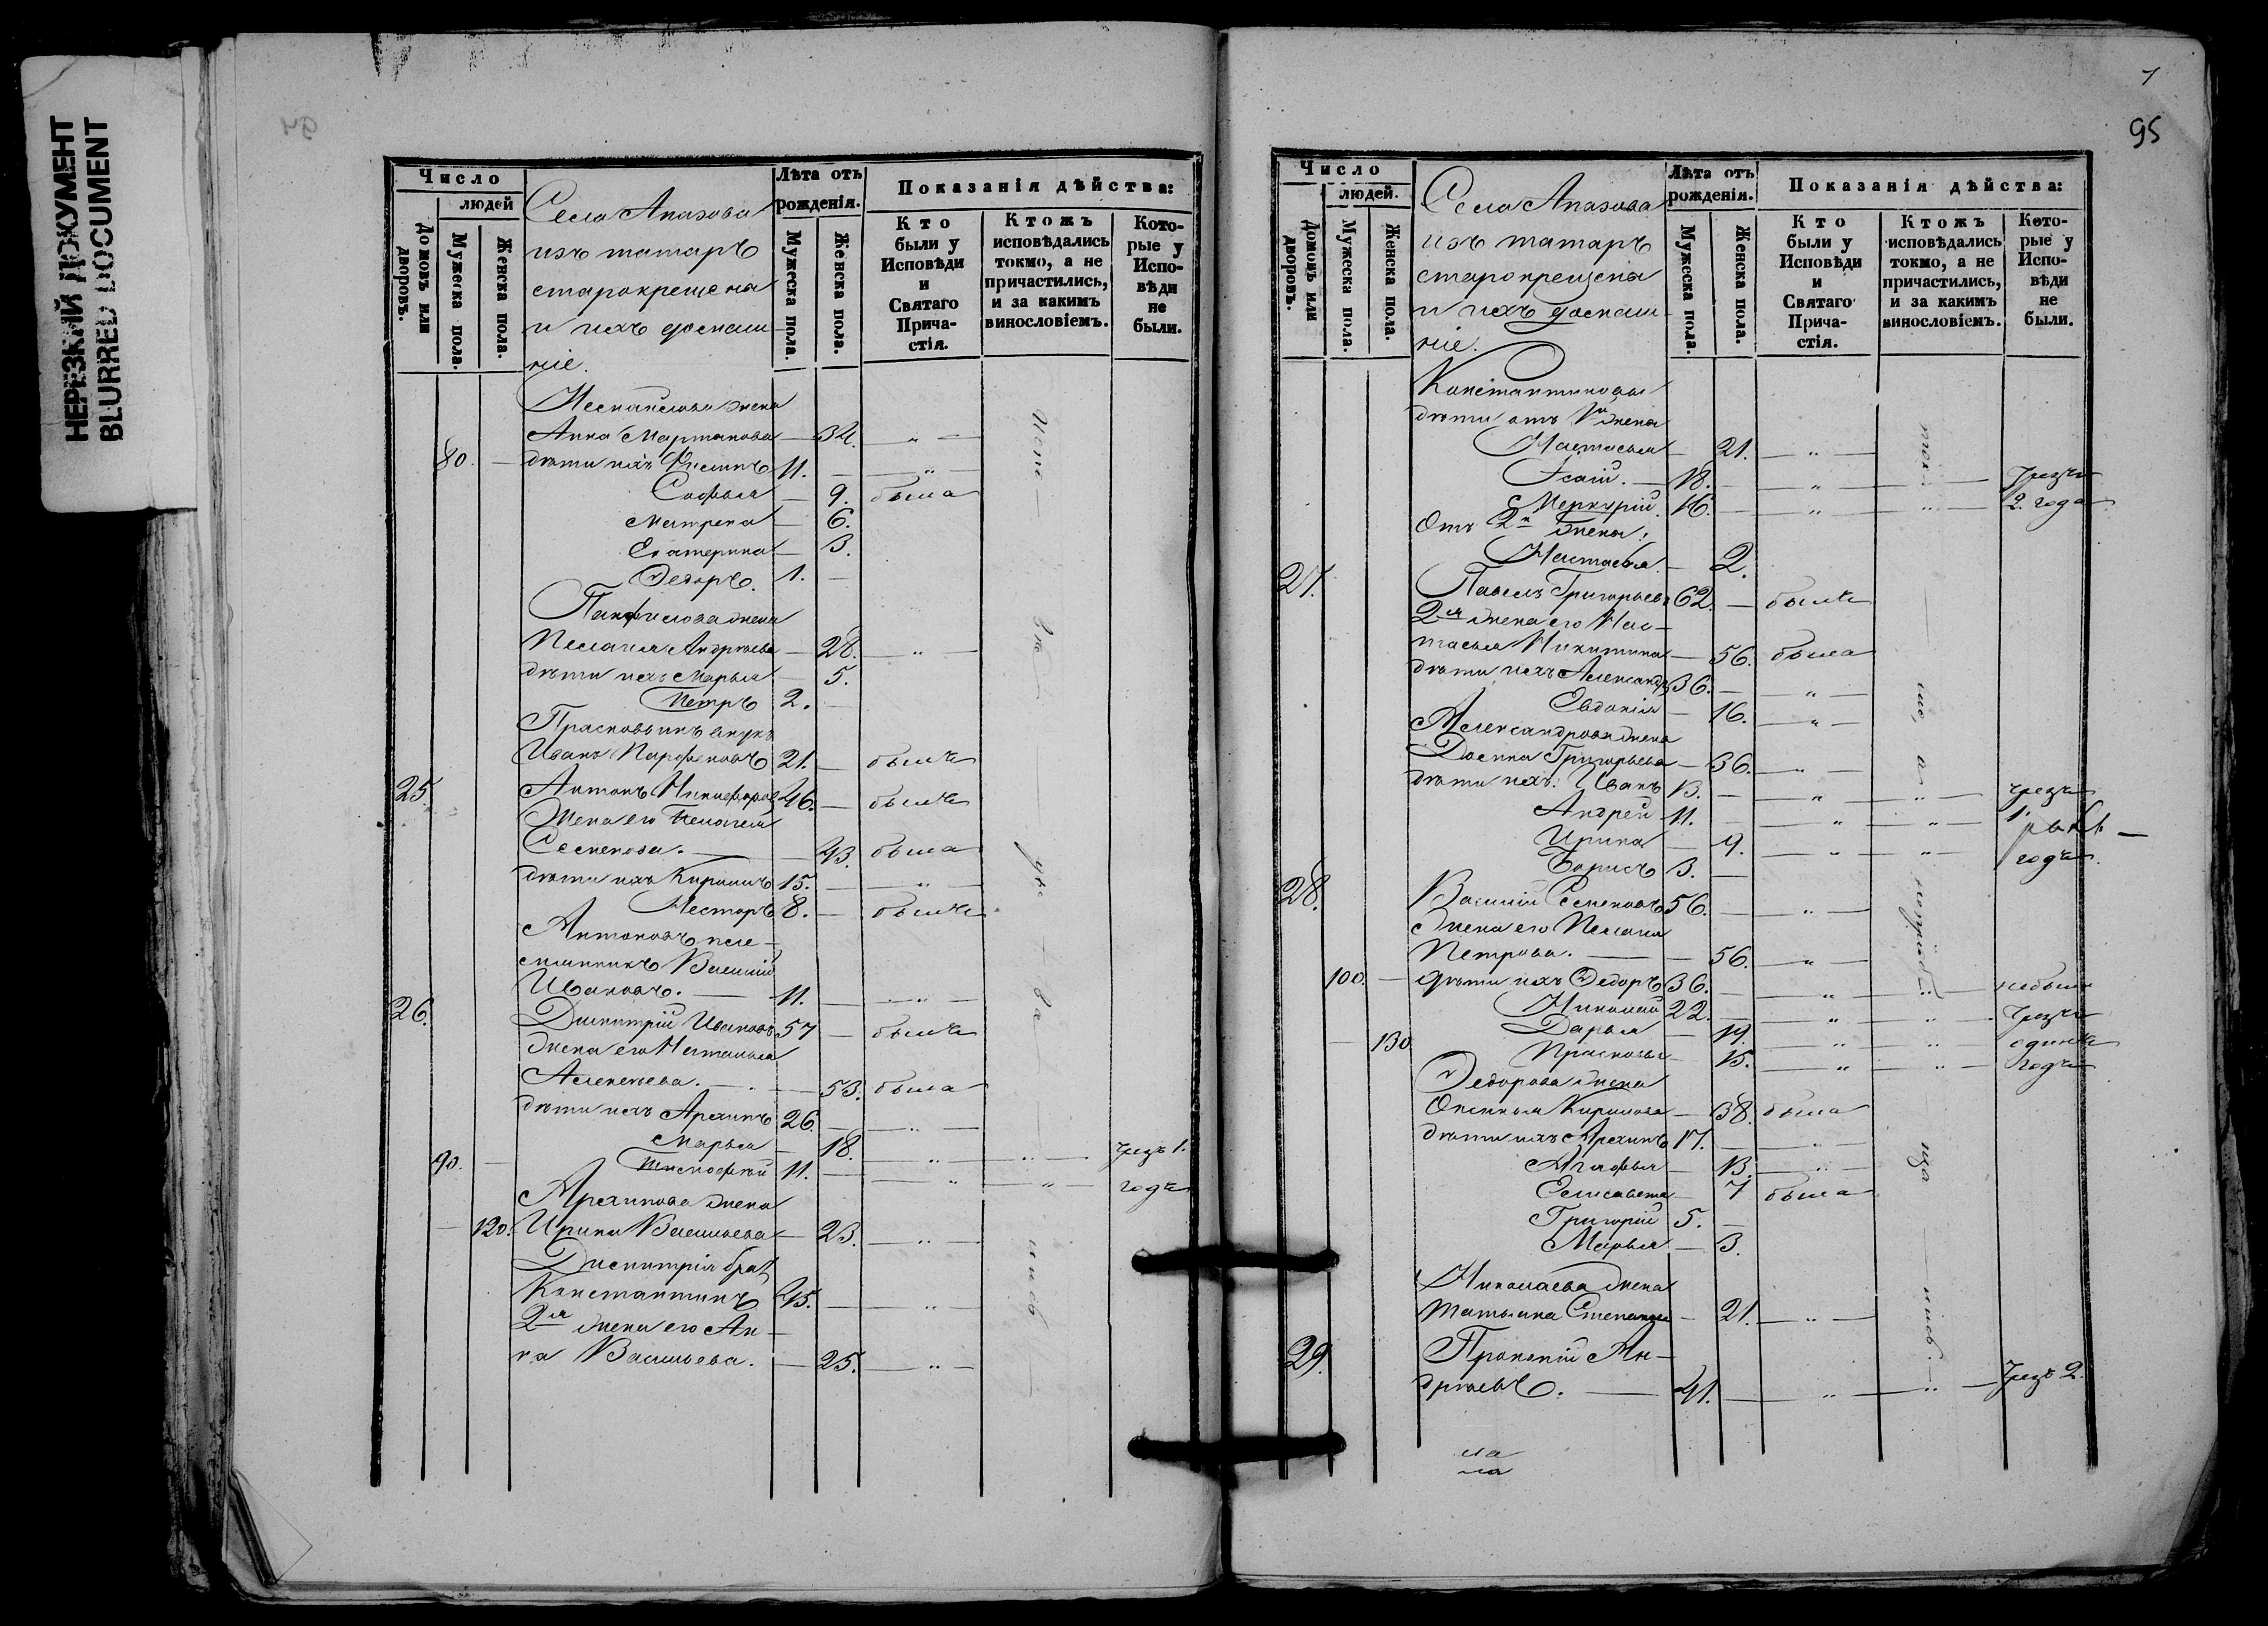 НЕРЕЗКИЙ ДОКУМЕНТ
BLURRED DOCUMENT
94
Число
людей
Домовъ или дворовъ.
Мужеска пола.
Женска пола.
Села Апазова
изъ татаръ
старокрещена
и ихъ домаш-
ніе.
Лѣта отъ рожденія.
Мужеска пола.
Женска пола.
Показанія дѣйства:
Кто были у Исповѣди и Святаго Прича-стія.
Ктожъ исповѣдались токмо, а не причастились, и за какимъ винословіемъ.
Кото-рые у Испо-вѣди не были.
жена
Анна Мартинова — 34. — „ —
80. — дѣти ихъ 11. — „ —
Софья — 9. была
Матрена — 6.
Екатерина — 3.
Ѳедоръ. 1. —
Панфилова жена
Пелагія Андреева — 28. — „ —
дѣти ихъ Марья — 5.
Петръ 2. —
Прасковьинъ внукъ
Иванъ Парфеновъ 21. — былъ
25. Антонъ Никифоровъ 46. — былъ
Жена его Пелагея
Семенова. — 43. была
дѣти ихъ Кирилъ 15. — „ —
Несторъ 8. — былъ
Антоновъ пле-
мянникъ Василій
Ивановъ. — 11. — „ —
26. Димитрій Ивановъ 57 — былъ
жена его Настасья
Алексѣева. — 53. была
дѣти ихъ Архипъ 26. — „ —
Марья — 18. — „ — „ — чрезъ 1.
90. — Тимофей 11. — „ — „ — годъ
Архипова жена
— 120. Ирина Васильева — 23. — „ —
Димитрія братъ
Константинъ 45. — „ —
2я жена его Ан-
на Васильева. — 25. — „ —
7
95
Число
людей.
Домовъ или дворовъ.
Мужеска пола.
Женска пола.
Села Апазова
изъ татаръ
старокрещена
и ихъ домаш-
ніе.
Лѣта отъ рожденія.
Мужеска пола.
Женска пола.
Показанія дѣйства:
Кто были у Исповѣди и Святаго Прича-стія.
Ктожъ исповѣдались токмо, а не причастились, и за какимъ винословіемъ.
Кото-рые у Испо-вѣди не были.
Константиновы
дѣти отъ 1й жены
Настасья — 21. — „ —
Исаій. — 18. — „ — „ — чрезъ
Меркурій. 16. — „ — „ — 2. года
Отъ 2й жены:
Настасья. — 2.
27. Павелъ Григорьевъ 62. — былъ
2я жена его Нас-
тасья Никитина — 56. была
дѣти ихъ Александръ 36. — „ —
Евдокія — 16. — „ —
Александрова жена
Домна Григорьева — 36. — „ —
дѣти ихъ: Иванъ 13. — „ — „ — чрезъ
Андрей 11. — „ — „ — 1.
Ирина — 9. — „ — „ — годъ
Борисъ 3. —
28. Василій Семеновъ 56. — „ —
жена его Пелагія
Петрова. — 56. — „ —
100. — дѣти ихъ Ѳедоръ 36. — „ — „ — небыли
Николай 22. — „ — „ — чрезъ
— 130 Дарья — 19. — „ — „ — одинъ
Прасковья — 15. — „ — „ — годъ
Ѳедорова жена
Кирилова — 38. была
дѣти ихъ Архипъ 17. — „ —
Агафья — 13. — „ —
Елисавета — 7 была
Григорій 5. —
Марья — 3.
Николаева жена
Татьяна Степанова — 21. — „ —
29. Прокопій Ан-
дреевъ. — 41. — „ — „ — чрезъ 2.
ла
ла